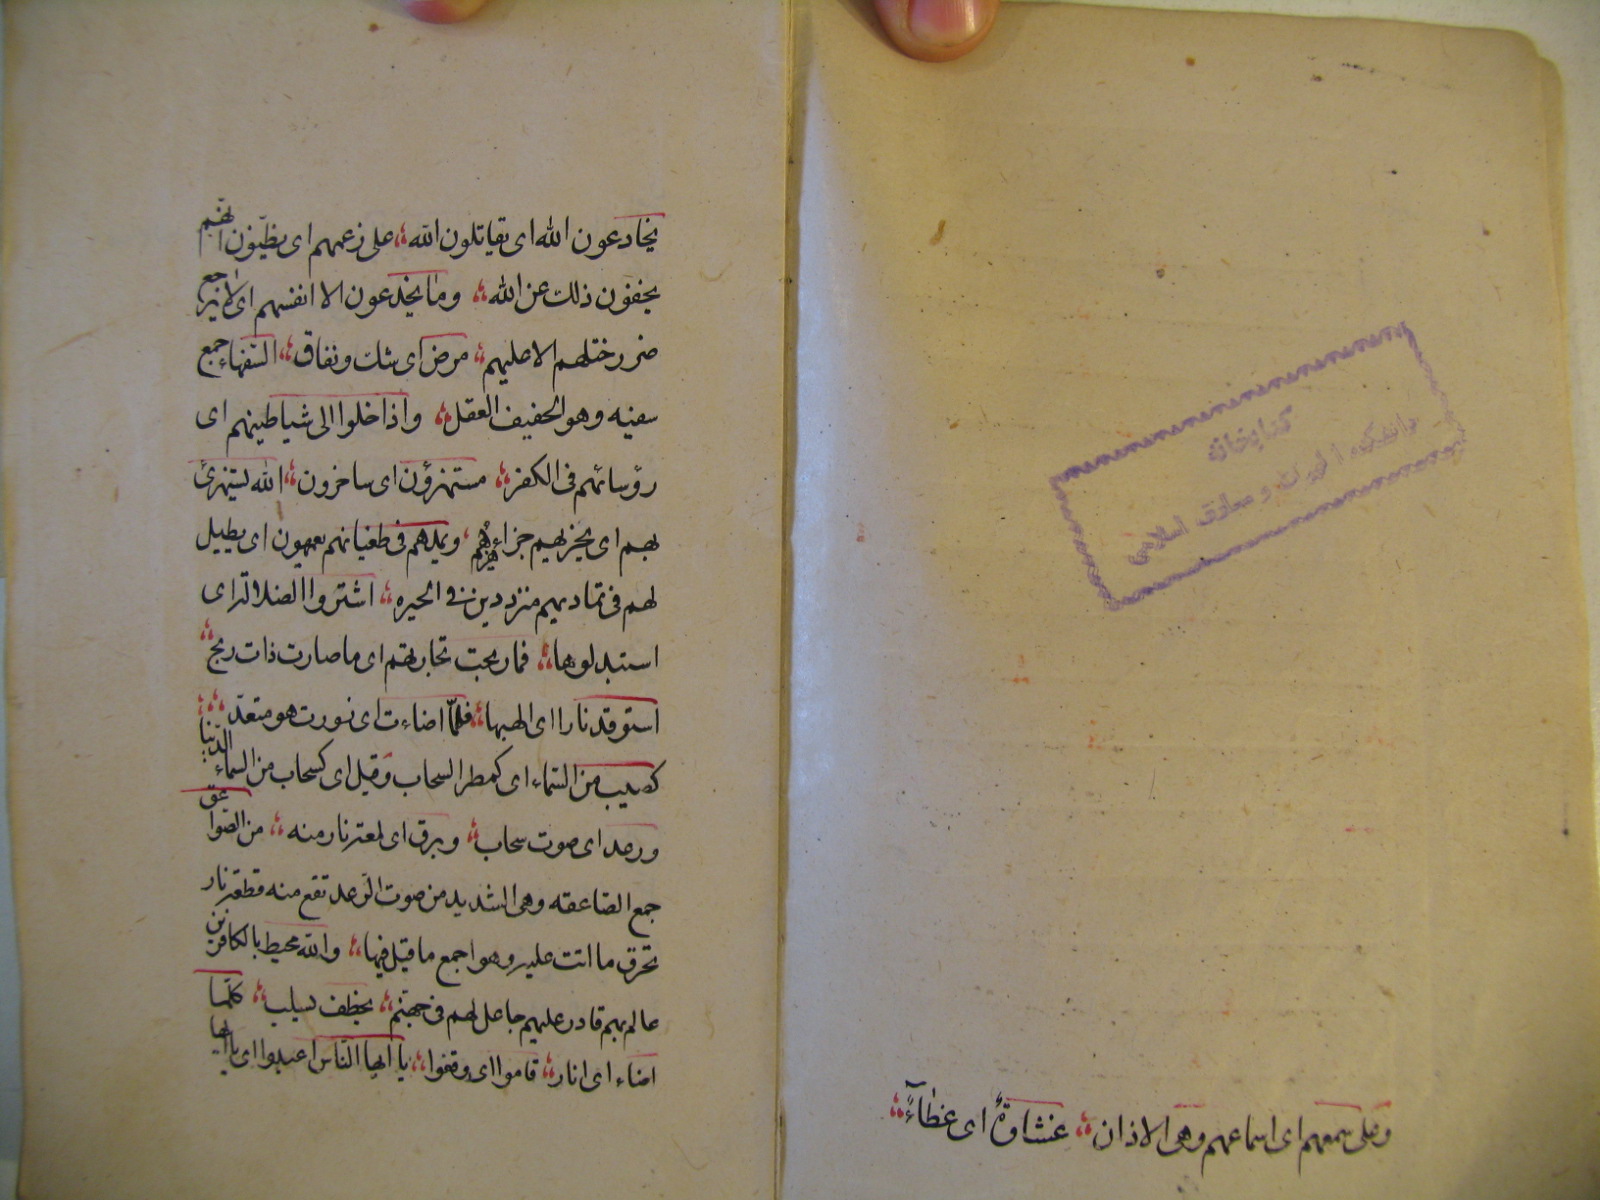 كتابخانه
دانشكده الهيات و معارف اسلامى
وعلى سمعهم اى اسماعهم وهى الاذان غشاوةٌ اى غطآءً
يخادعون الله اى يقاتلون الله على زعمهم اى يظنّون انّهم
يخفون ذلك عن الله وما يخدعون الا انفسهم اى لا يرجع
ضرر ختلهم الا عليهم مرض اى شك ونفاق السّفهاء جمع
سفيه وهو الخفيف العقل واذا خلوا الى شياطينهم اى
رؤسائهم فى الكفر مستهزؤن اى ساخرون الله يستهزئ
بهم اى يجزيهم جزاء هزءهم ويمدهم فى طغيانهم يعمهون اى يطيل
لهم فى تماديهم مترددين فى الحيره اشتروا الضلالة اى
استبدلوها فما ربحت تجارتهم اى ما صارت ذات ربح
استوقد نارا اى الهبها فلمّا اضاءت اى نورت هو متعدّ
كصيب من السّماء اى كمطر السحاب وقيل اى كسحاب من السماء الدّنيا
ورعد اى صوت سحاب وبرق اى لمعة نار منه من الصّواعق
جمع الصاعقه وهى الشديد من صوت الرّعد تقع منه قطعة نار
تحرق ما اتت عليه وهو اجمع ما قيل فيها والله محيط بالكافرين
عالم بهم قادر عليهم جاعل لهم فى جهنّم يخطف يسلب كلّما
اضاء اى انار قاموا اى وقفوا يا ايها النّاس اعبدوا اى يا ايها